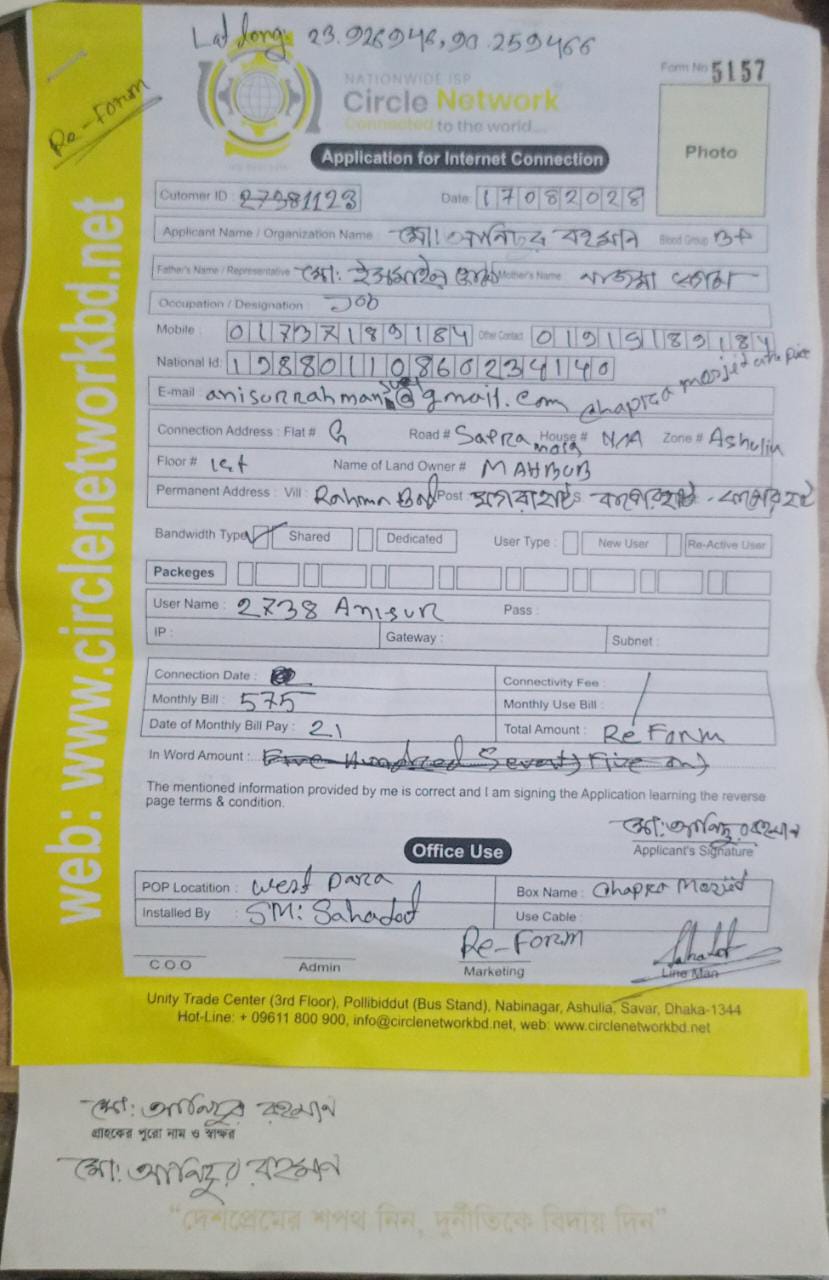 Lat Long: 23.926946, 90.259466
Re-Form
Form No 5157
NATIONWIDE ISP
Circle Network
Connected to the world...
Photo
Application for Internet Connection
Cutomer ID : 27381123 Date: 17082028
Applicant Name / Organization Name : মো: আনিছুর রহমান Blood Group B+
Father's Name / Representative মো: Mother's Name :
Occupation / Designation : Job
Mobile : 01737189184 Other Contact 01915189184
National Id: 19880110860234140
E-mail anisurrahman @gmail.com chapra masjid
Connection Address : Flat # G Road # Sapra House # N/A Zone # Ashulia
Floor # 1st Name of Land Owner # MAHBUB
Permanent Address : Vill : Post :
Bandwidth Type Shared Dedicated User Type : New User Re-Active User
Packeges
User Name : 2738 Anisur Pass :
IP : Gateway : Subnet :
Connection Date : Connectivity Fee :
Monthly Bill : 575 Monthly Use Bill :
Date of Monthly Bill Pay : 21 Total Amount : Re Form
In Word Amount : Five Hundred Seventy Five
The mentioned information provided by me is correct and I am signing the Application learning the reverse
page terms & condition.
মো: আনিছুর রহমান
Applicant's Signature
Office Use
POP Locatition : West Para Box Name : Chapra Mosjid
Installed By : SM: Sahadat Use Cable :
Re-Form Sahadat
C O O Admin Marketing Line Man
Unity Trade Center (3rd Floor), Pollibiddut (Bus Stand), Nabinagar, Ashulia, Savar, Dhaka-1344
Hot-Line: + 09611 800 900, info@circlenetworkbd.net, web: www.circlenetworkbd.net
web: www.circlenetworkbd.net
মো: আনিছুর রহমান
গ্রাহকের পুরো নাম ও স্বাক্ষর
মো: আনিছুর রহমান
"দেশপ্রেমের শপথ নিন, দুর্নীতিকে বিদায় দিন"